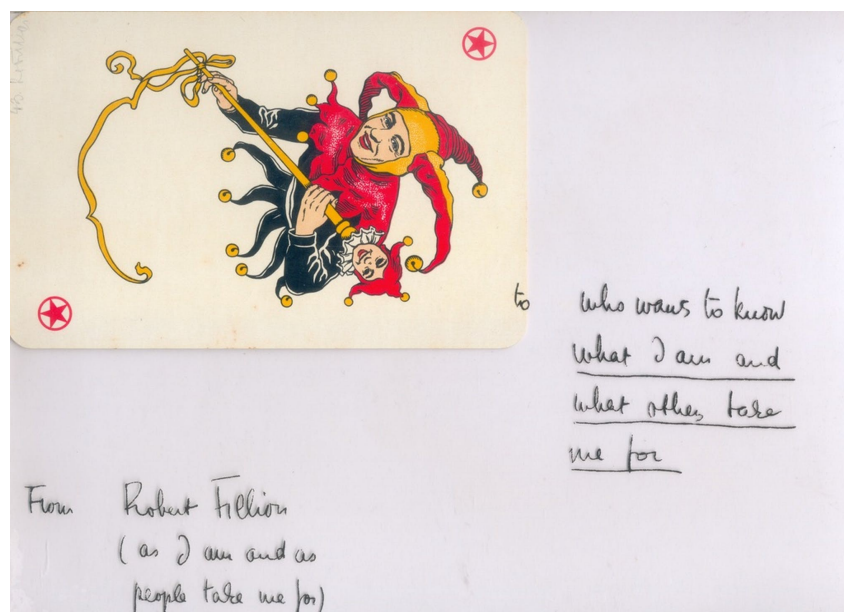 to who wants to know
what I am and
what others take
me for
From Robert Fillion
(as I am and as
people take me for)